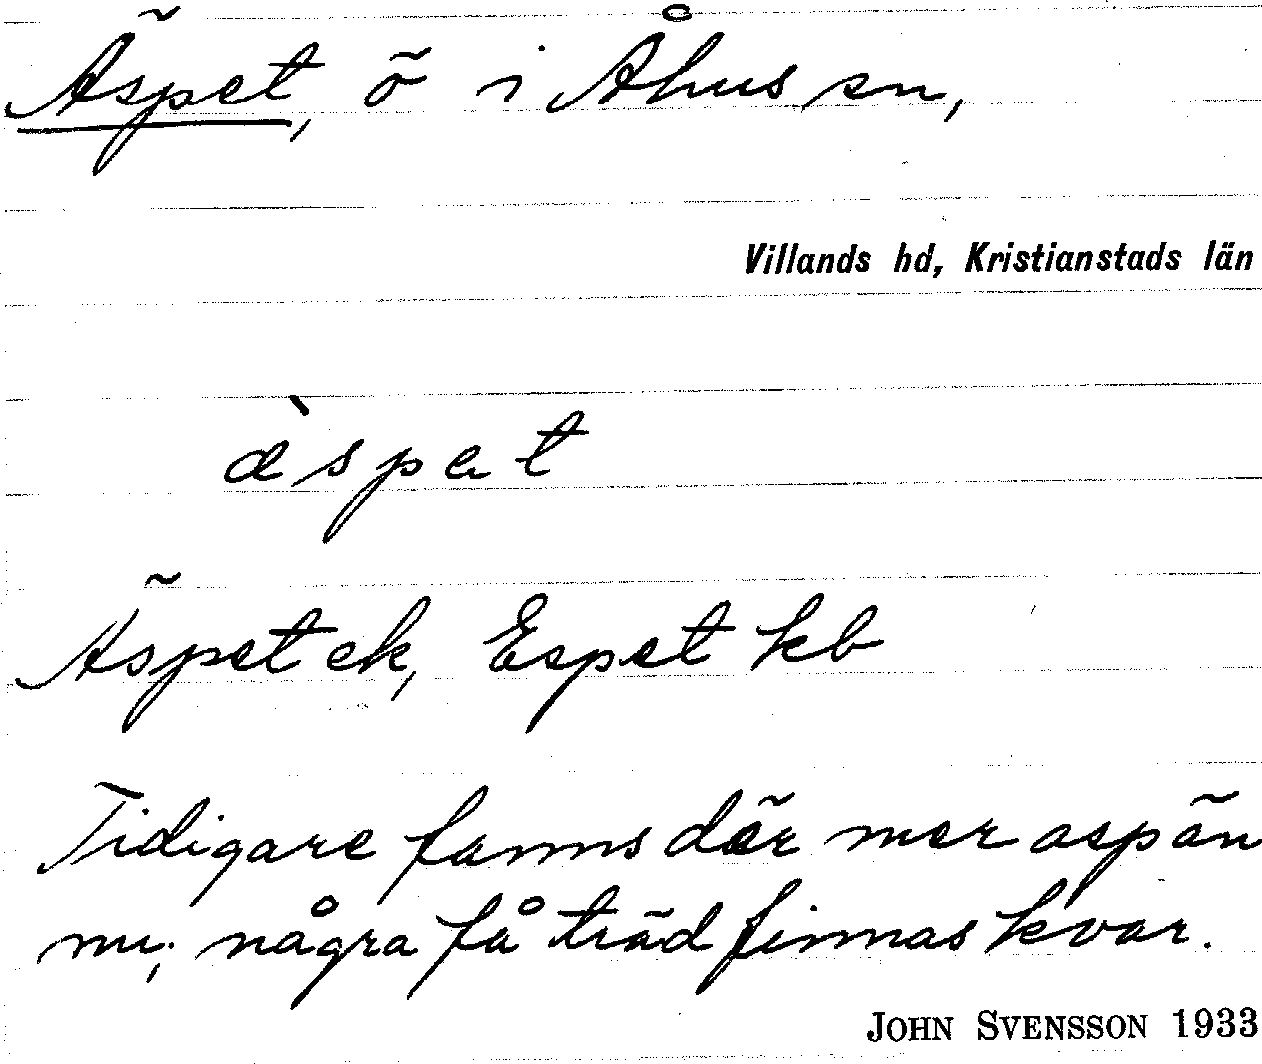 Äspet, ö i Åhus sn,
Villands hd, Kristianstads län
æ̀spət
Äspet ek, Espet kb
Tidigare fanns där mer asp än
nu; några få träd finnas kvar.
JOHN SVENSSON 1933